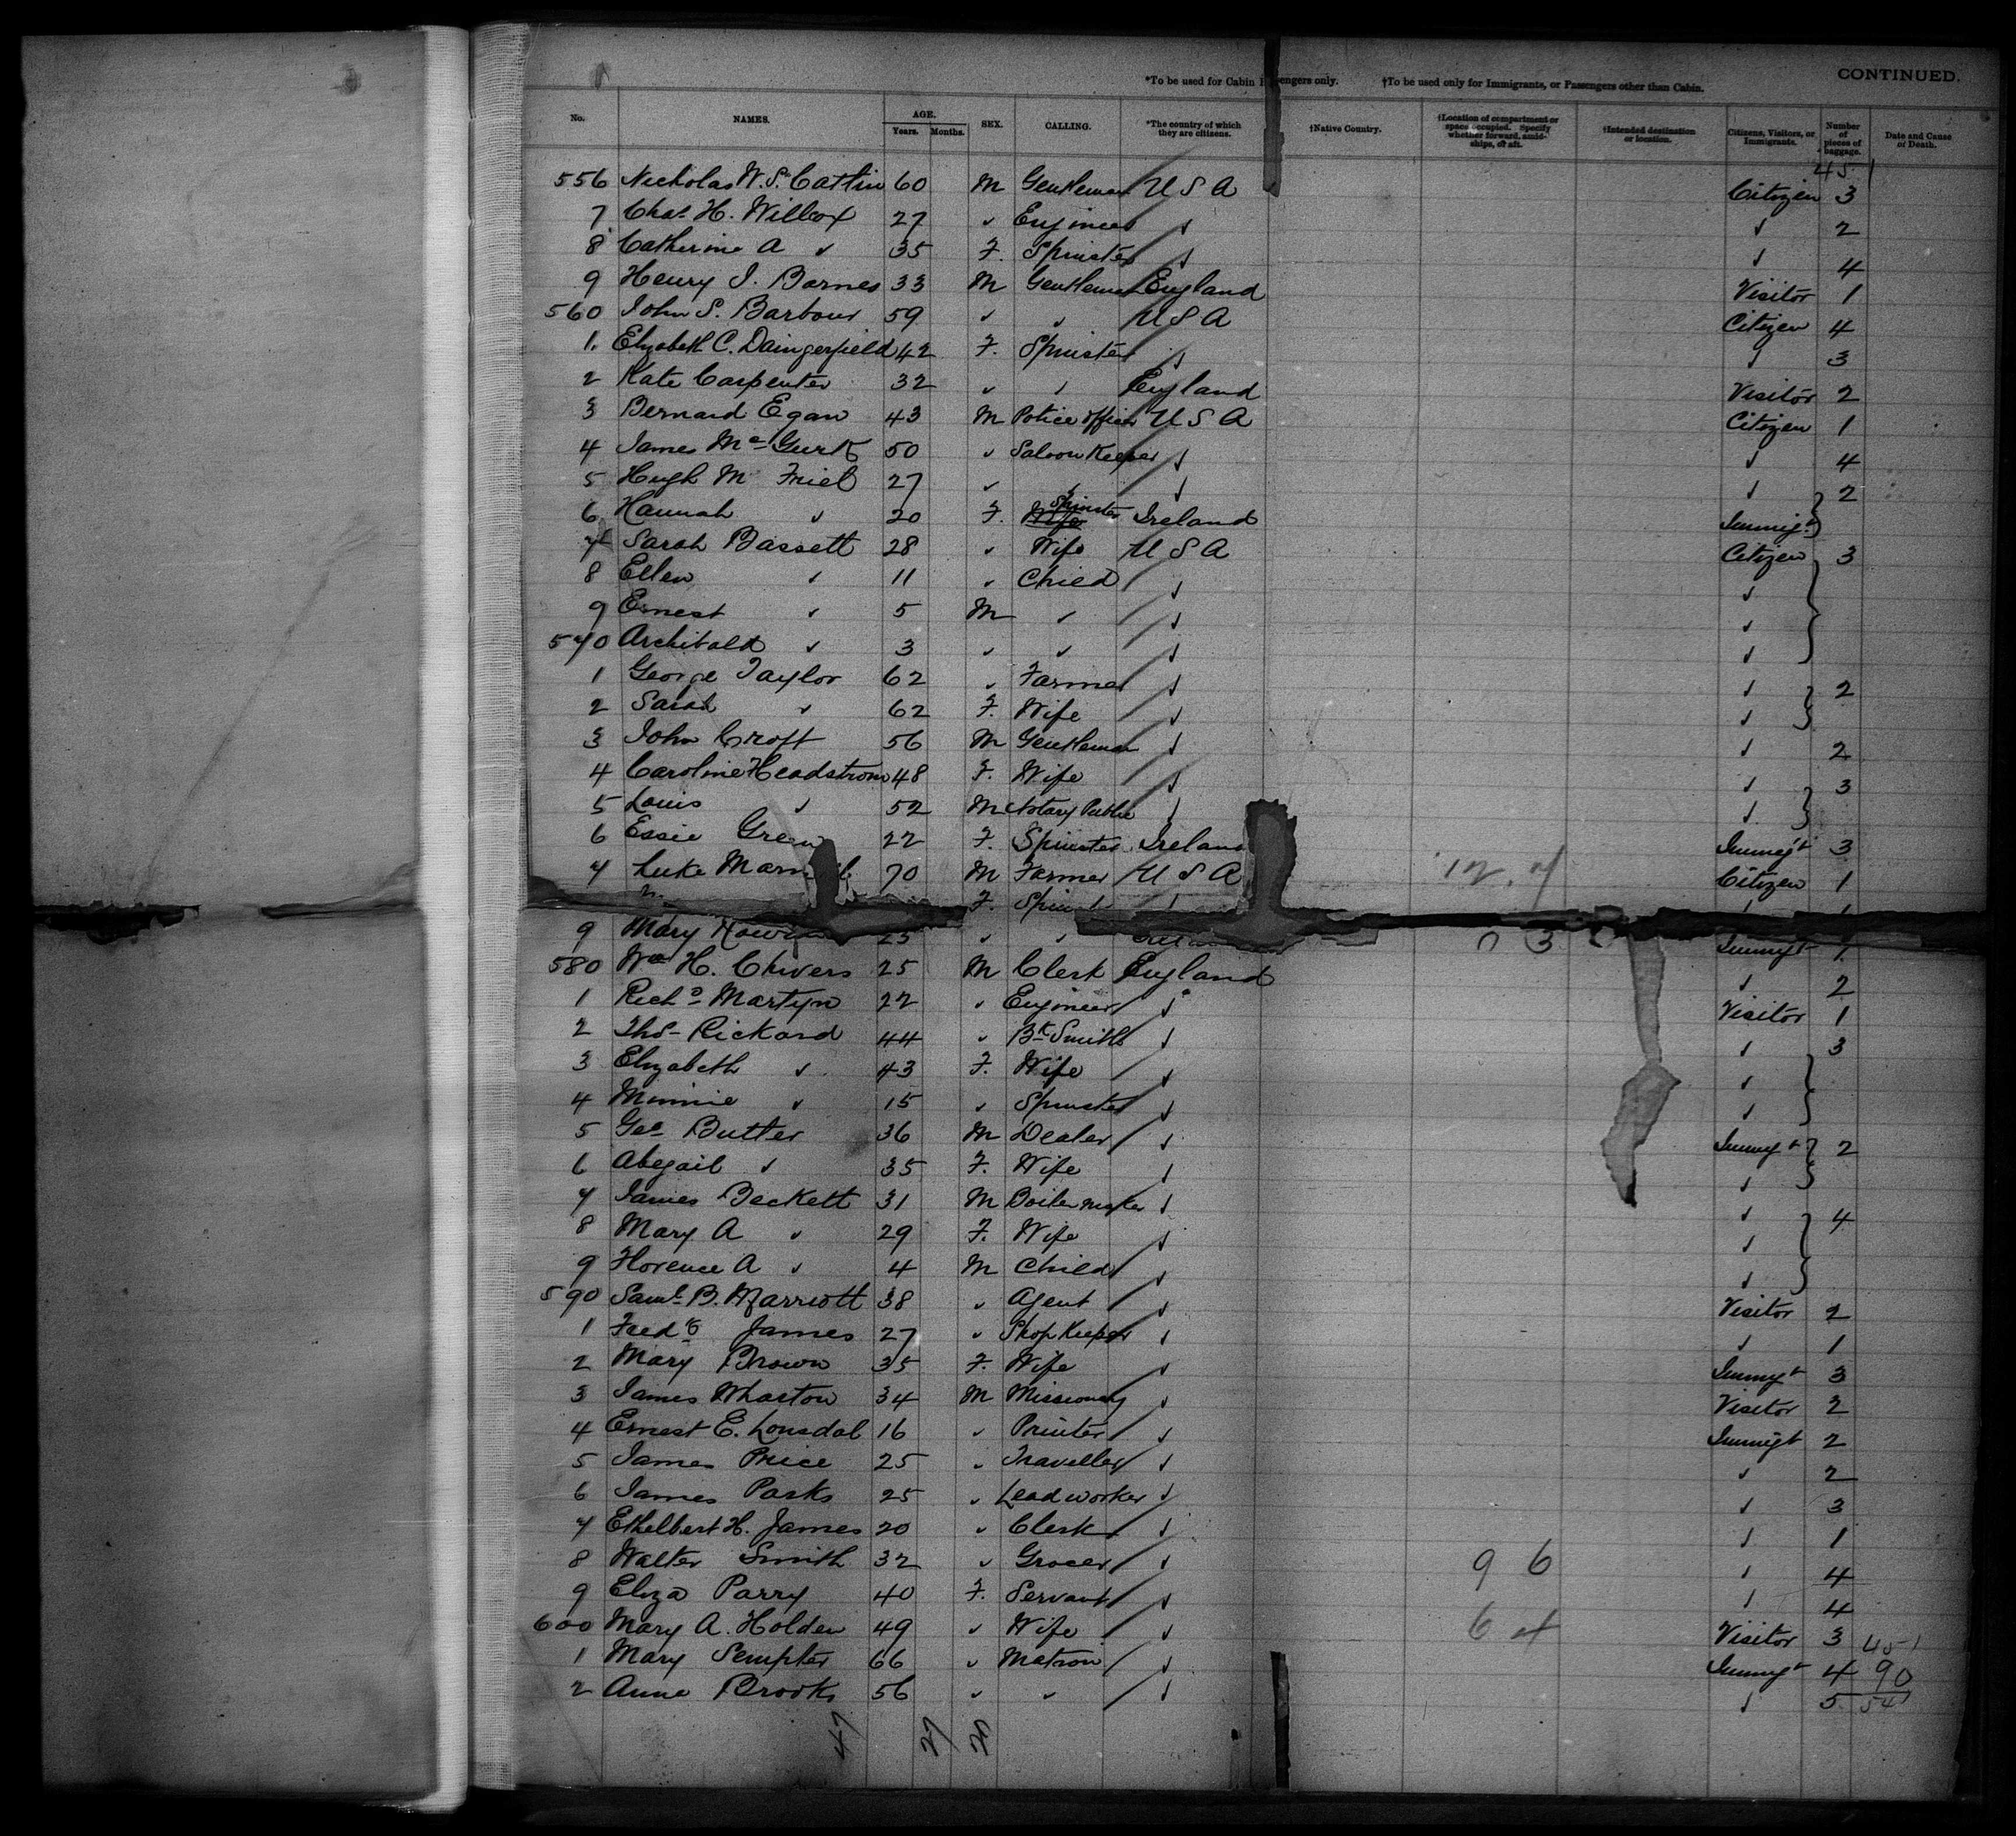 CONTINUED.
*To be used for Cabin Passengers only. †To be used only for Immigrants, or Passengers other than Cabin.
No. NAMES. AGE. Years. Months. SEX. CALLING. *The country of which they are citizens. †Native Country. †Location of compartment or space occupied. Specify whether forward, amidships, or aft. †Intended destination or location. Citizens, Visitors, or Immigrants. Number of pieces of baggage. Date and Cause of Death.
451
556 Nicholas W. St Catlin 60 M Gentleman U S A Citizen 3
7 Chas H. Willcox 27 " Engineer " " 2
8 Catherine A " 35 F. Spinster " " 4
9 Henry I. Barnes 33 M Gentleman England Visitor 1
560 John S. Barbour 59 " " U S A Citizen 4
1. Elizabeth C. Daingerfield 42 F. Spinster " " 3
2 Kate Carpenter 32 " " England Visitor 2
3 Bernard Egan 43 M Police Officer U S A Citizen 1
4 James Mc Gurk 50 " Saloon Keeper " " 4
5 Hugh Mc Friel 27 " " " " 2
6 Hannah " 20 F. Wife Spinster Ireland Immigt
7 Sarah Bassett 28 " Wife U S A Citizen 3
8 Ellen " 11 " Child " "
9 Ernest " 5 M " " "
570 Archibald " 3 " " " "
1 George Taylor 62 " Farmer " " 2
2 Sarah " 62 F. Wife " "
3 John Croft 56 M Gentleman " " 2
4 Caroline Headstrom 48 F. Wife " " 3
5 Louis " 52 M Notary Public " "
6 Essie Green 22 F. Spinster Ireland Immigt 3
7 Luke 70 M Farmer U S A 12.7 Citizen 1
F. " "
9 Mary 25 " " 0 3 Immigt 1
580 Wm H. Chivers 25 M Clerk England " 2
1 Richd Martyn 22 " Engineer " Visitor 1
2 Thos Rickard 44 " Bk Smith " " 3
3 Elizabeth " 43 F. Wife " "
4 Minnie " 15 " Spinster " "
5 Geo Butler 36 M Dealer " Immigt 2
6 Abegail " 35 F. Wife " "
7 James Beckett 31 M Boiler maker " " 4
8 Mary A " 29 F. Wife " "
9 Florence A " 4 M Child " "
590 Saml B. Marriott 38 " Agent " Visitor 2
1 Fredk James 27 " Shop Keeper " " 1
2 Mary Brown 35 F. Wife " Immigt 3
3 James Wharton 34 M Missionary " Visitor 2
4 Ernest E. Lonsdal 16 " Printer " Immigt 2
5 James Price 25 " Traveller " " 2
6 James Parks 25 " Lead worker " " 3
7 Ethelbert H. James 20 " Clerk " " 1
8 Walter Smith 32 " Grocer " 9 6 " 4
9 Eliza Parry 40 F. Servant " " 4
600 Mary A. Holden 49 " Wife " 6 4 Visitor 3 451
1 Mary Sempter 66 " Matron " Immigt 4 90
2 Anne Brooks 56 " " " " 5 541
47 27 20